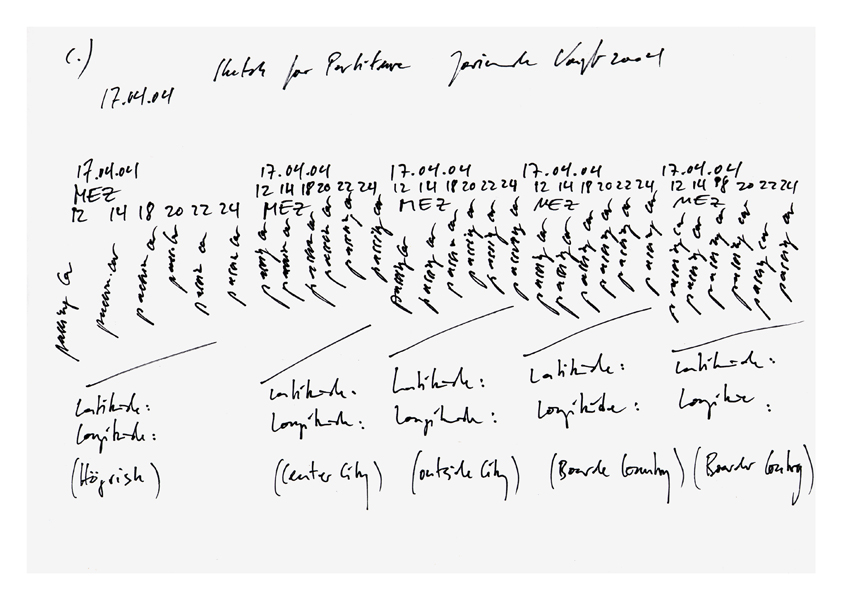 C.) Sketch for Partiture Jorinde Voigt 2004
17.04.04
17.04.04 17.04.04 17.04.04 17.04.04 17.04.04
MEZ 12 14 18 20 22 24 12 14 18 20 22 24 12 14 18 20 22 24 12 14 18 20 22 24
12 14 18 20 22 24 MEZ MEZ MEZ MEZ
passing car passing car passing car passing car passing car passing car passing car passing car passing car passing car passing car passing car passing car passing car passing car passing car passing car passing car passing car passing car passing car passing car passing car passing car passing car passing car passing car passing car passing car passing car
Latitude: Latitude. Latitude: Latitude: Latitude:
Longitude: Longitude: Longitude: Longitude: Longitude:
(Center City) (outside City) (Boarde Country) (Boarder Contry)